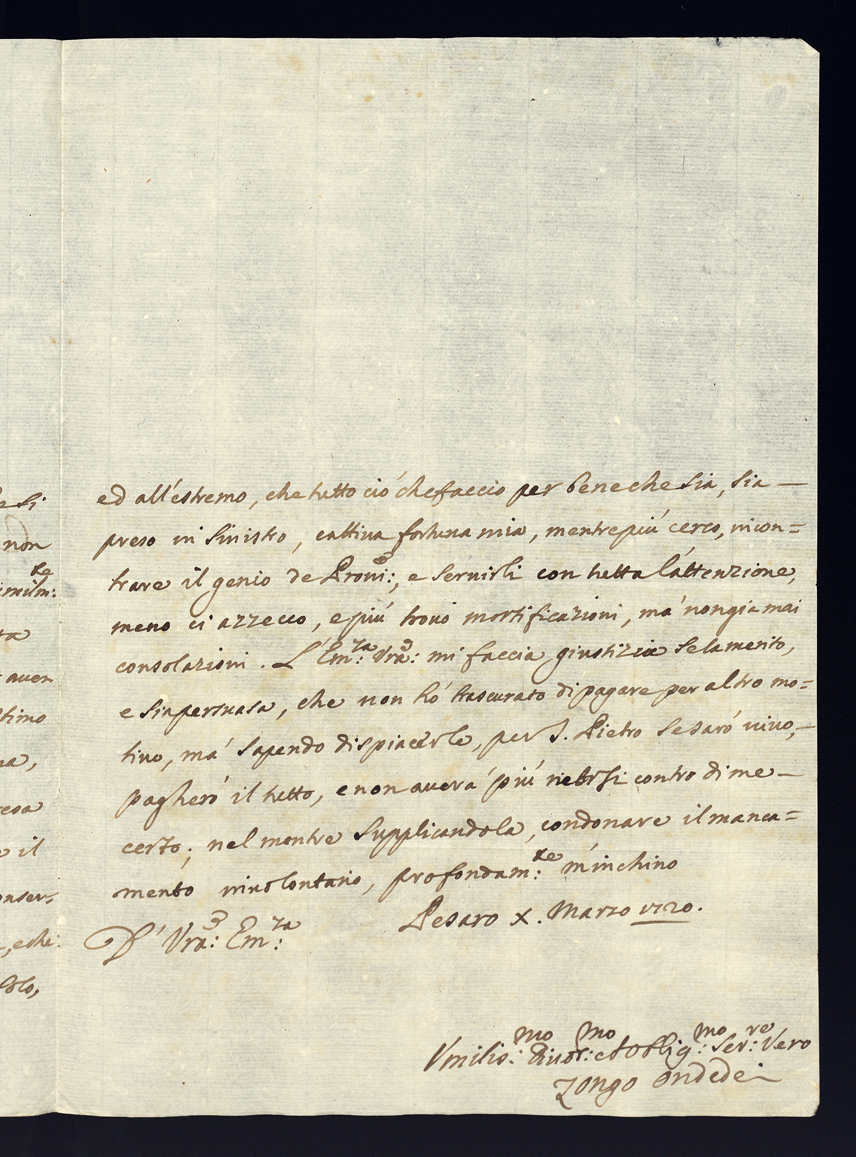 e si
non
imilm:te
ta
auen
timo
na,
resa
e il
onser=
, e che
solo,
ed all'estremo, che tutto ciò che faccio per bene che sia, sia —
preso in sinistro, cattiva fortuna mia, mentre più cerco, incon=
trare il genio de Proni:, e servirli con tutta l'attenzione,
meno ci azzecco, e più trovo mortificazioni, mà non gia mai
consolazioni. L'Em:za Vra: mi faccia giustizia se la merito,
e sia persuasa, che non hò trascurato di pagare per altro mo=
tivo, mà sapendo dispiacerle, per S. Pietro se sarò vivo, —
pagherò il tutto, e non averà più contro di me —
certo; nel mentre supplicandola, condonare il manca=
mento involontario, profondam:te m'inchino
Pesaro X. Marzo 1720.
D' Vra: Em:za
Vmilis:mo Diuot:mo et Oblig:mo Ser:re Vero
Zongo Ondedei